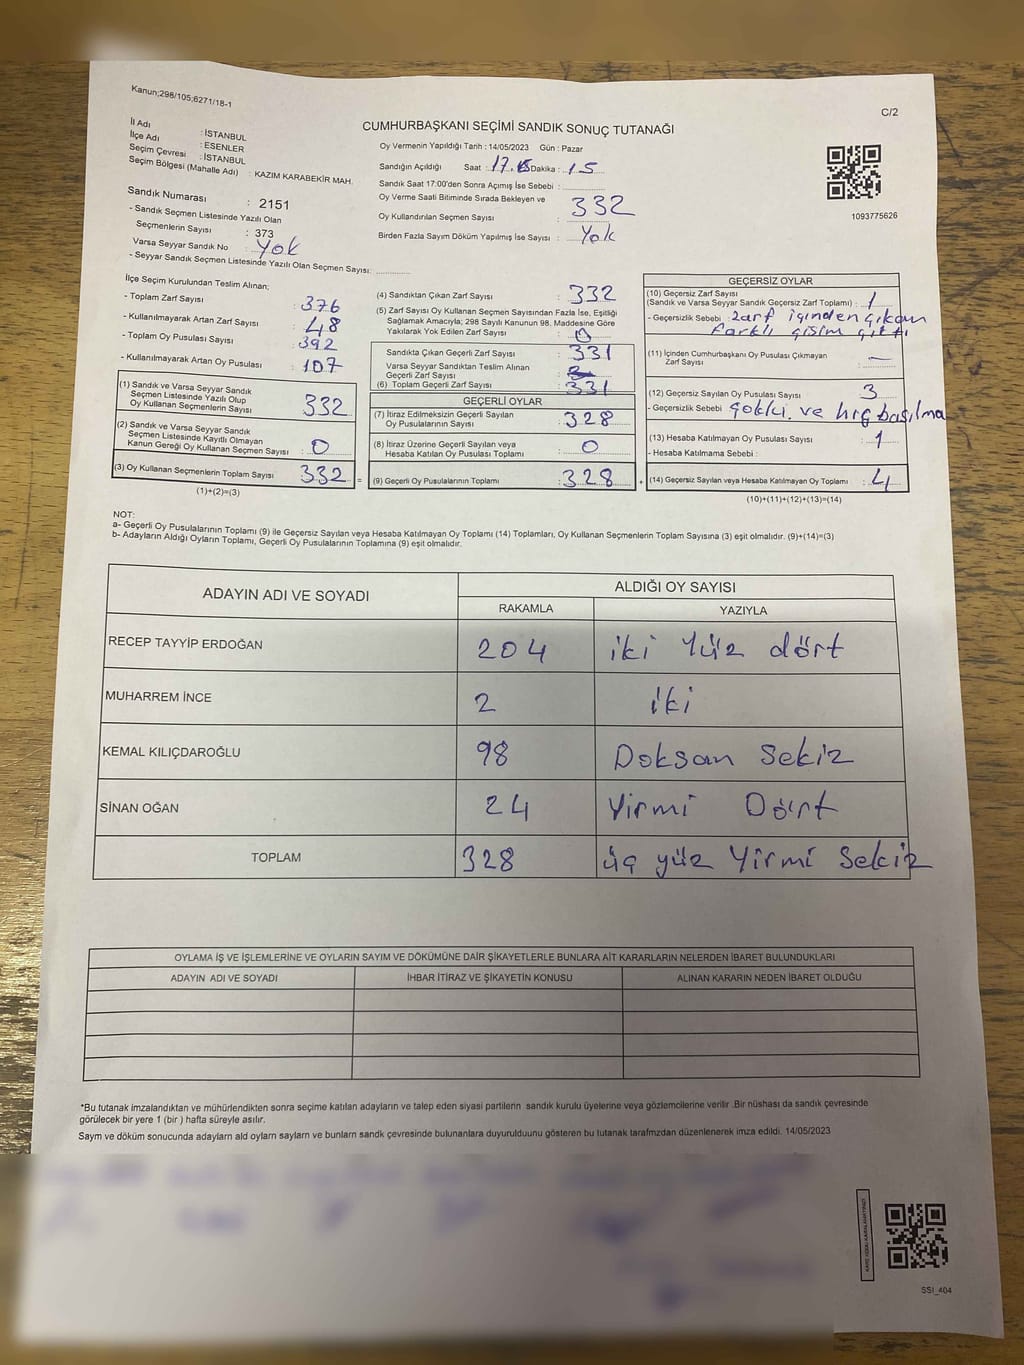 Kanun;298/105;6271/18-1
C/2
CUMHURBAŞKANI SEÇİMİ SANDIK SONUÇ TUTANAĞI
İl Adı : İSTANBUL
İlçe Adı : ESENLER
Seçim Çevresi : İSTANBUL
Seçim Bölgesi (Mahalle Adı) : KAZIM KARABEKİR MAH.
Sandık Numarası : 2151
- Sandık Seçmen Listesinde Yazılı Olan
Seçmenlerin Sayısı : 373
Varsa Seyyar Sandık No : Yok
- Seyyar Sandık Seçmen Listesinde Yazılı Olan Seçmen Sayısı:
Oy Vermenin Yapıldığı Tarih : 14/05/2023 Gün : Pazar
Sandığın Açıldığı Saat : 17. Dakika : 15
Sandık Saat 17:00'den Sonra Açımış İse Sebebi :
Oy Verme Saati Bitiminde Sırada Bekleyen ve
Oy Kullandırılan Seçmen Sayısı : 332
Birden Fazla Sayım Döküm Yapılmış İse Sayısı : Yok
1093775626
İlçe Seçim Kurulundan Teslim Alınan;
- Toplam Zarf Sayısı : 376
- Kullanılmayarak Artan Zarf Sayısı : 48
- Toplam Oy Pusulası Sayısı : 392
- Kullanılmayarak Artan Oy Pusulası : 107
(1) Sandık ve Varsa Seyyar Sandık
Seçmen Listesinde Yazılı Olup
Oy Kullanan Seçmenlerin Sayısı 332
(2) Sandık ve Varsa Seyyar Sandık
Seçmen Listesinde Kayıtlı Olmayan
Kanun Gereği Oy Kullanan Seçmen Sayısı : 0
(3) Oy Kullanan Seçmenlerin Toplam Sayısı 332 =
(1)+(2)=(3)
(4) Sandıktan Çıkan Zarf Sayısı : 332
(5) Zarf Sayısı Oy Kullanan Seçmen Sayısından Fazla İse, Eşitliği
Sağlamak Amacıyla; 298 Sayılı Kanunun 98. Maddesine Göre
Yakılarak Yok Edilen Zarf Sayısı : 0
Sandıkta Çıkan Geçerli Zarf Sayısı : 331
Varsa Seyyar Sandıktan Teslim Alınan
Geçerli Zarf Sayısı
(6) Toplam Geçerli Zarf Sayısı : 331
GEÇERLİ OYLAR
(7) İtiraz Edilmeksizin Geçerli Sayılan
Oy Pusulalarının Sayısı : 328
(8) İtiraz Üzerine Geçerli Sayılan veya
Hesaba Katılan Oy Pusulası Toplamı : 0
(9) Geçerli Oy Pusulalarının Toplamı : 328 +
GEÇERSİZ OYLAR
(10) Geçersiz Zarf Sayısı
(Sandık ve Varsa Seyyar Sandık Geçersiz Zarf Toplamı) : 1
- Geçersizlik Sebebi : zarf içinden çıkan
farklı çisim çıktı
(11) İçinden Cumhurbaşkanı Oy Pusulası Çıkmayan
Zarf Sayısı : —
(12) Geçersiz Sayılan Oy Pusulası Sayısı : 3
- Geçersizlik Sebebi çoklu ve hiç basılma
(13) Hesaba Katılmayan Oy Pusulası Sayısı : 1
- Hesaba Katılmama Sebebi :
(14) Geçersiz Sayılan veya Hesaba Katılmayan Oy Toplamı : 4
(10)+(11)+(12)+(13)=(14)
NOT:
a- Geçerli Oy Pusulalarının Toplamı (9) ile Geçersiz Sayılan veya Hesaba Katılmayan Oy Toplamı (14) Toplamları, Oy Kullanan Seçmenlerin Toplam Sayısına (3) eşit olmalıdır. (9)+(14)=(3)
b- Adayların Aldığı Oyların Toplamı, Geçerli Oy Pusulalarının Toplamına (9) eşit olmalıdır.
ADAYIN ADI VE SOYADI ALDIĞI OY SAYISI
RAKAMLA YAZIYLA
RECEP TAYYİP ERDOĞAN 204 iki Yüz dört
MUHARREM İNCE 2 iki
KEMAL KILIÇDAROĞLU 98 Doksan Sekiz
SİNAN OĞAN 24 Yirmi Dört
TOPLAM 328 üç yüz Yirmi Sekiz
OYLAMA İŞ VE İŞLEMLERİNE VE OYLARIN SAYIM VE DÖKÜMÜNE DAİR ŞİKAYETLERLE BUNLARA AİT KARARLARIN NELERDEN İBARET BULUNDUKLARI
ADAYIN ADI VE SOYADI İHBAR İTİRAZ VE ŞİKAYETİN KONUSU ALINAN KARARIN NEDEN İBARET OLDUĞU
*Bu tutanak imzalandıktan ve mühürlendikten sonra seçime katılan adayların ve talep eden siyasi partilerin sandık kurulu üyelerine veya gözlemcilerine verilir .Bir nüshası da sandık çevresinde
görülecek bir yere 1 (bir ) hafta süreyle asılır.
Saym ve döküm sonucunda adayların ald oyların sayların ve bunların sandk çevresinde bulunanlara duyurulduunu gösteren bu tutanak tarafmzdan düzenlenerek imza edildi. 14/05/2023
SSI_404